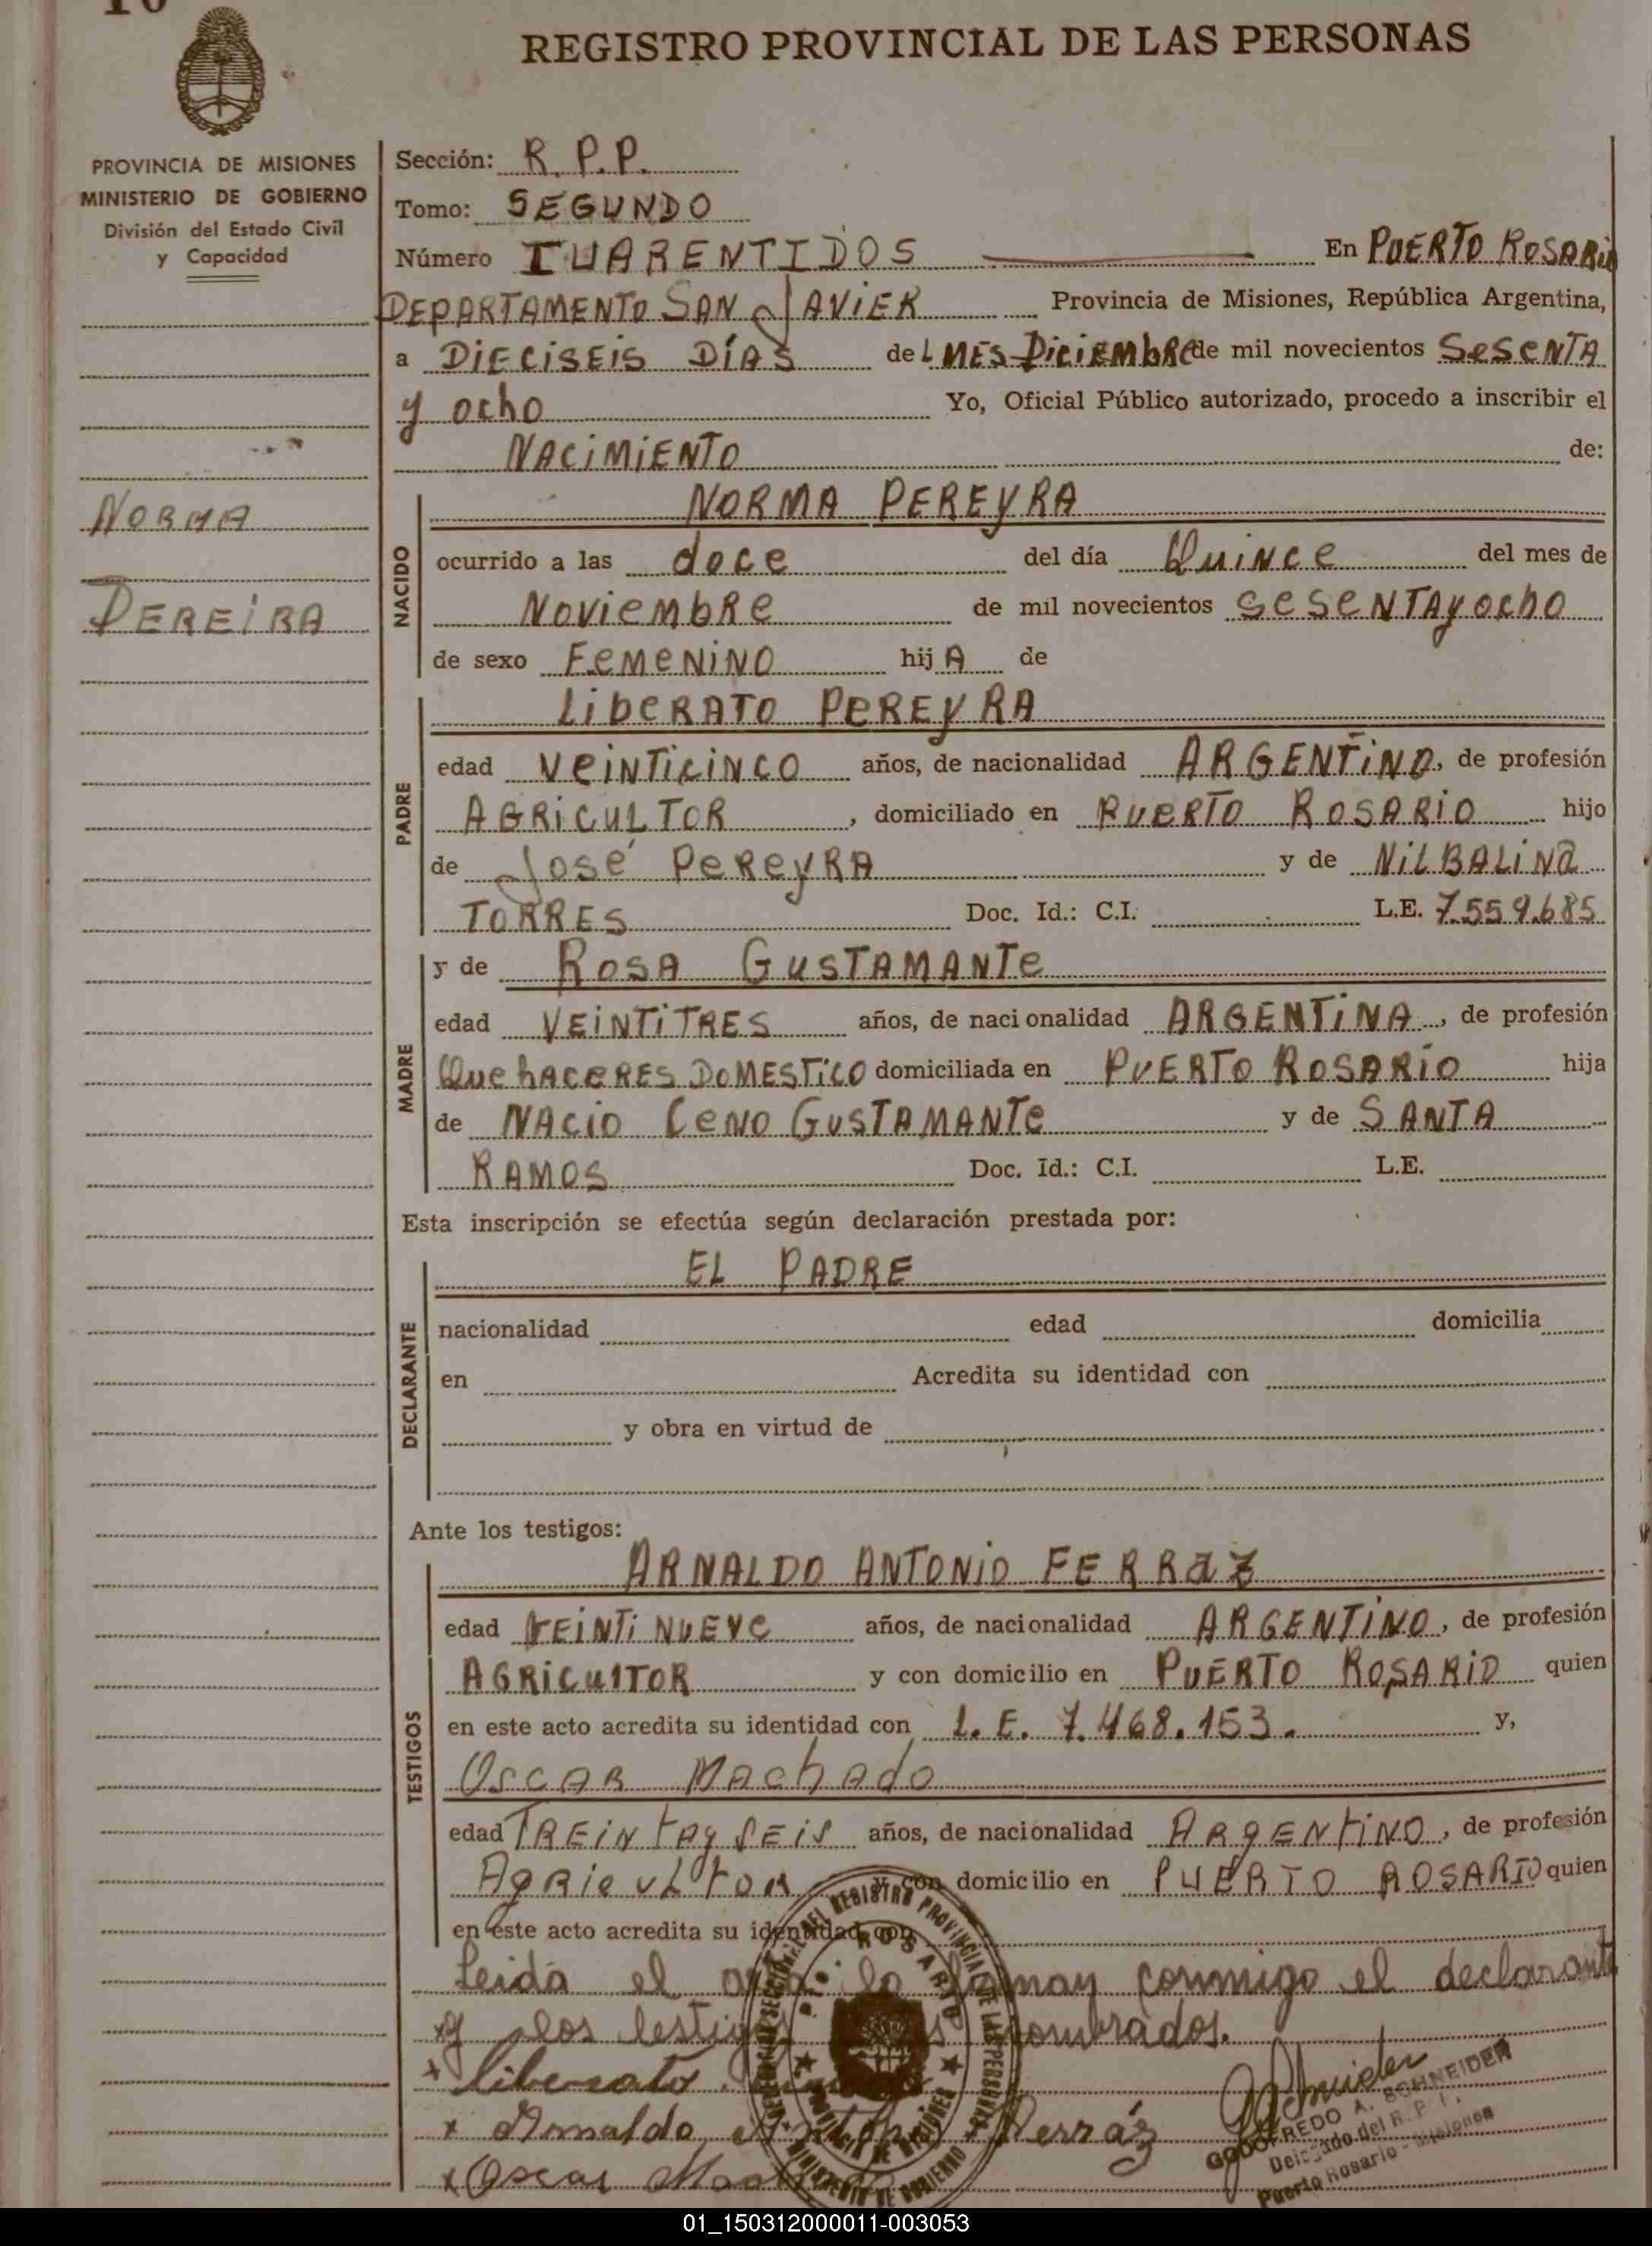 REGISTRO PROVINCIAL DE LAS PERSONAS
PROVINCIA DE MISIONES
MINISTERIO DE GOBIERNO
División del Estado Civil
y Capacidad
NORMA
PEREIRA
Sección: R.P.P.
Tomo: SEGUNDO
Número CUARENTIDOS En PUERTO ROSARIO
DEPARTAMENTO SAN JAVIER Provincia de Misiones, República Argentina,
a DIECISEIS DÍAS del MES DICIEMBRE de mil novecientos SESENTA
y ocho Yo, Oficial Público autorizado, procedo a inscribir el
NACIMIENTO de:
NACIDO
NORMA PEREYRA
ocurrido a las doce del día Quince del mes de
Noviembre de mil novecientos SESENTA y ocho
de sexo FEMENINO hijA de
PADRE
LIBERATO PEREYRA
edad VEINTICINCO años, de nacionalidad ARGENTINO, de profesión
AGRICULTOR, domiciliado en PUERTO ROSARIO hijo
de José PEREYRA y de NILBALINA
TORRES Doc. Id.: C.I. L.E. 7.559.685
MADRE
y de ROSA GUSTAMANTE
edad VEINTITRES años, de nacionalidad ARGENTINA, de profesión
QueHACERES DOMESTICO domiciliada en PUERTO ROSARIO hija
de NACIO CENO GUSTAMANTE y de SANTA
RAMOS Doc. Id.: C.I. L.E.
Esta inscripción se efectúa según declaración prestada por:
DECLARANTE
EL PADRE
nacionalidad edad domicilia
en Acredita su identidad con
y obra en virtud de
Ante los testigos:
TESTIGOS
ARNALDO ANTONIO FERRAZ
edad VEINTI NUEVE años, de nacionalidad ARGENTINO, de profesión
AGRICULTOR y con domicilio en PUERTO ROSARIO quien
en este acto acredita su identidad con L.E. 7.468.153. y,
OSCAR MACHADO
edad TREINTA y SEIS años, de nacionalidad ARGENTINO, de profesión
AGRICULTOR y con domicilio en PUERTO ROSARIO quien
en este acto acredita su identidad con
Leida el acta la firman conmigo el declarante
y los testigos nombrados.
Liberato
Arnaldo Antonio Ferráz
Oscar
GODOFREDO A. SCHNEIDER
Delegado del R. P. P.
Puerto Rosario - Misiones
01_150312000011-003053